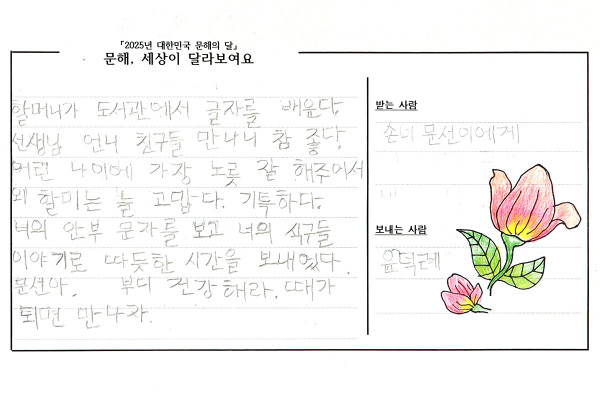 『2025년 대한민국 문해의 달』
문해, 세상이 달라보여요
할머니가 도서관에서 글자를 배운다.
선생님 언니 친구들 만나니 참 좋다.
어린 나이에 가장 노릇 잘 해주어서
왜 할미는 늘 고맙다. 기특하다.
너의 안부 문자를 보고 너의 식구들
이야기로 따듯한 시간을 보내였다.
문선아. 부디 건강해라. 때가
되면 만나자.
받는 사람
손녀 문선이에게
보내는 사람
윤덕례